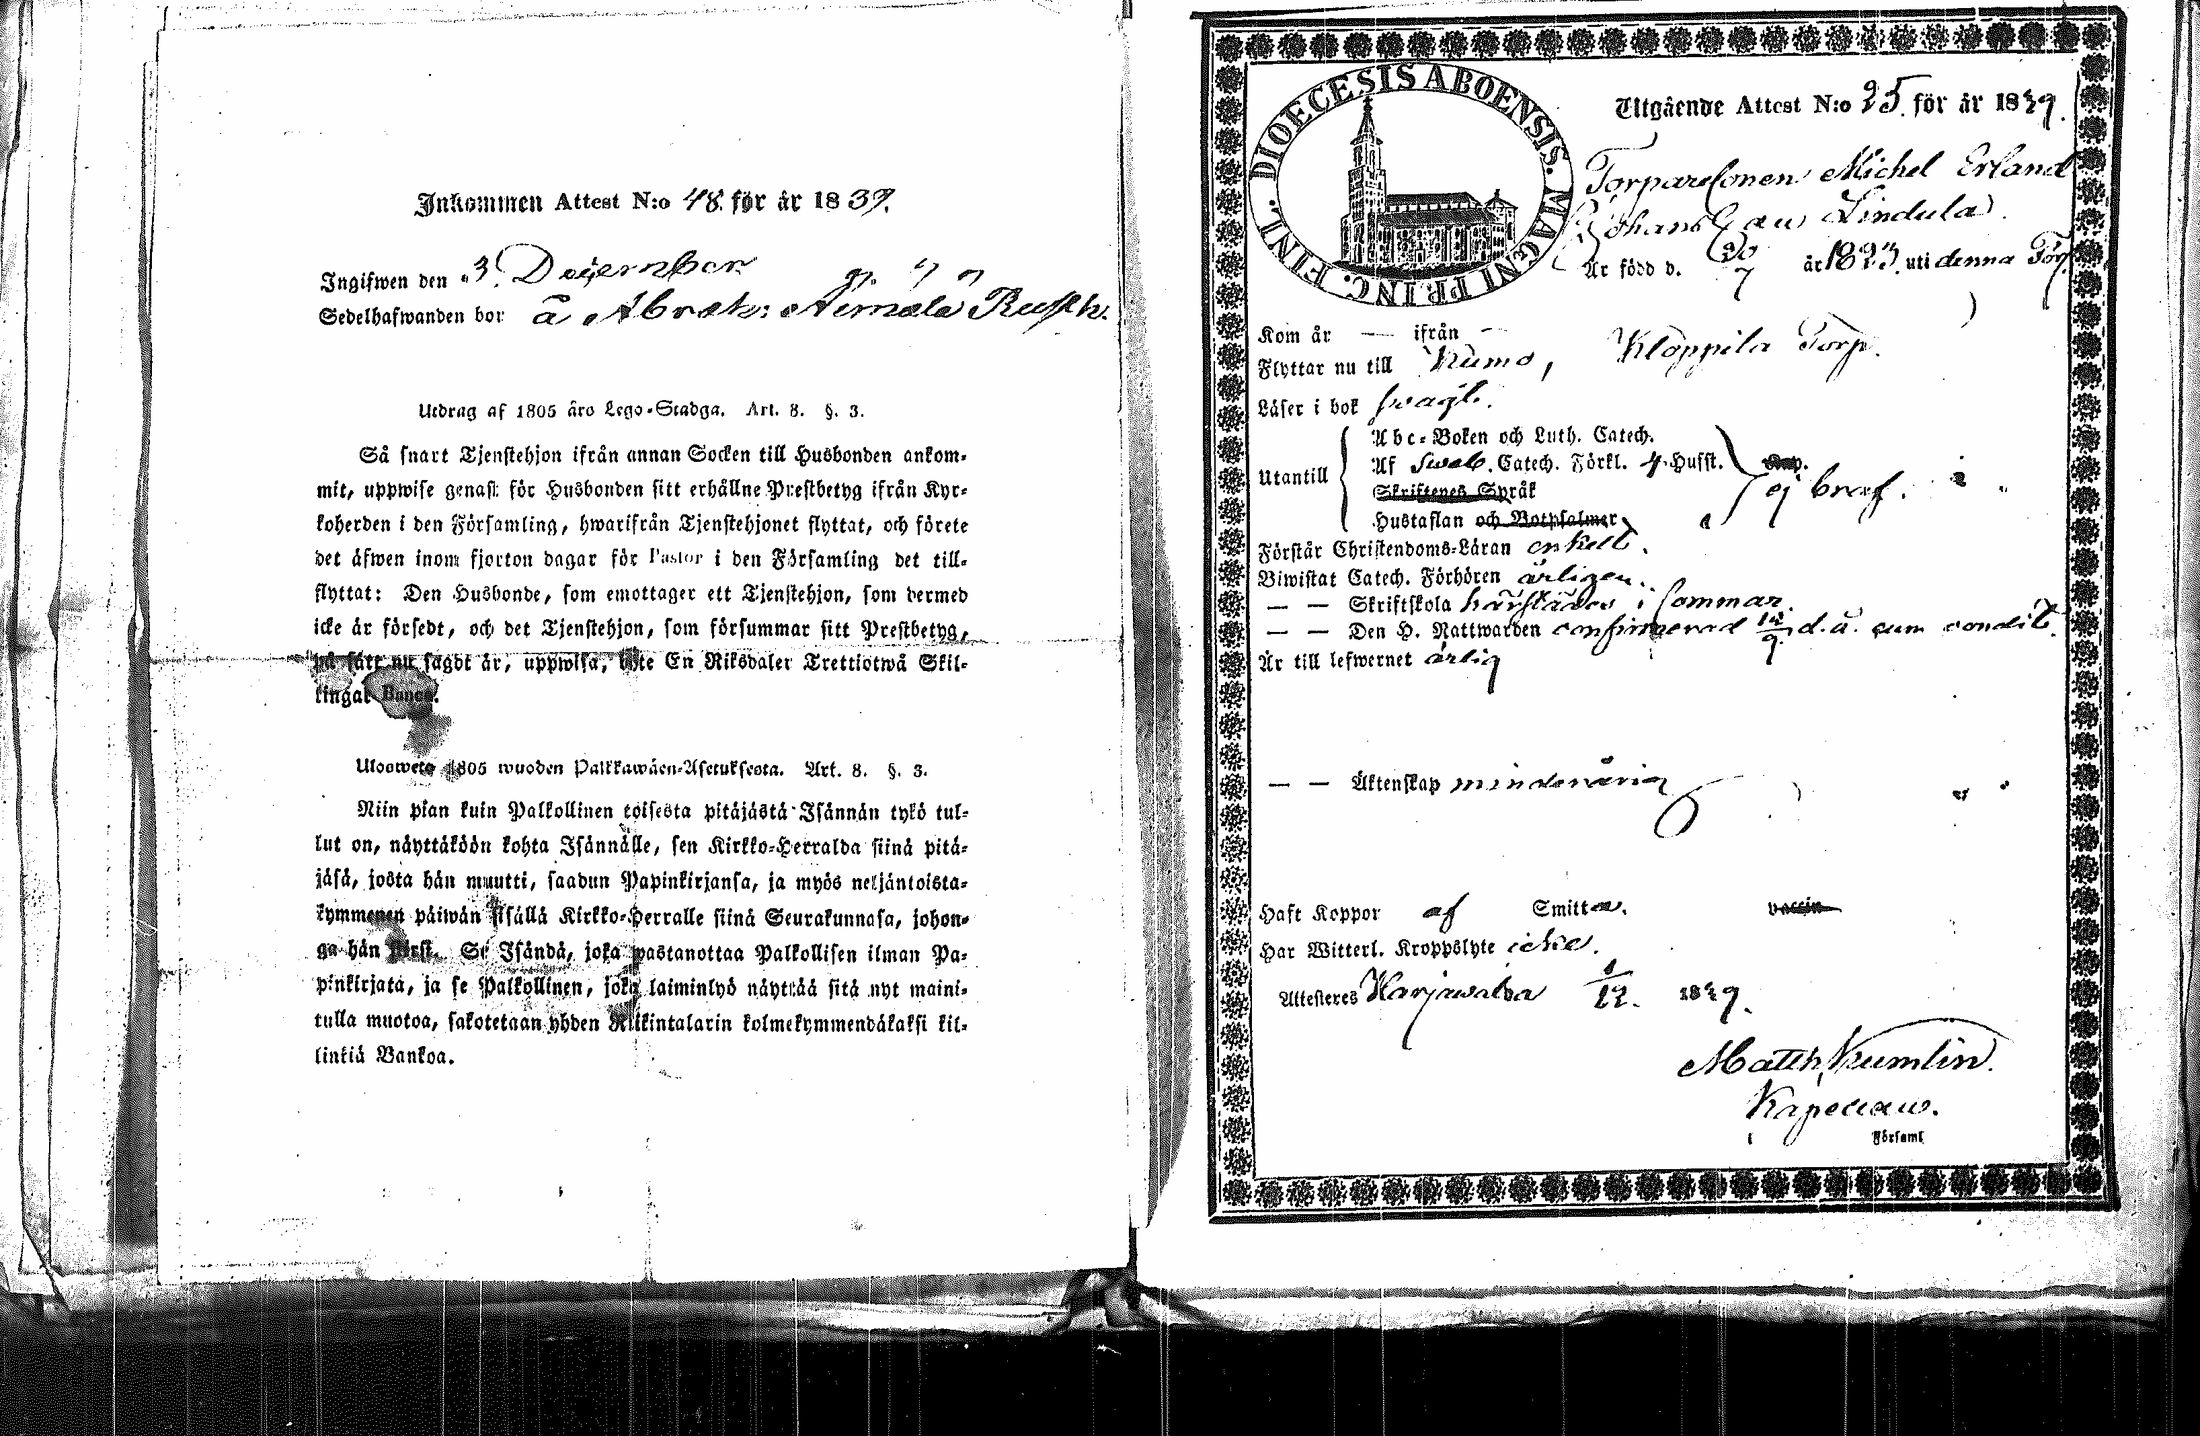 Inkommen Attest N:o 48. för år 1839.
Ingifwen den 3 December
Sedelhafwanden bor å Abrah: Rusth.
Utdrag af 1805 års Lego-Stadga. Art. 8. §. 3.
Så snart Tjenstehjon ifrån annan Socken till Husbonden ankom-
mit, uppwise genast för Husbonden sitt erhållne Prestbetyg ifrån Kyr-
koherden i den Församling, hwarifrån Tjenstehjonet flyttat, och förete
det äfwen inom fjorton dagar för Pastor i den Församling det till-
flyttat: Den Husbonde, som emottager ett Tjenstehjon, som dermed
icke är försedt, och det Tjenstehjon, som försummar sitt Prestbetyg,
på sätt nu sagdt är, uppwisa, böte En Riksdaler Trettiotwå Skil-
lingar Banco.
Ulosweto 1805 wuoden Palkkawäen-Asetuksesta. Art. 8. §. 3.
Niin pian kuin Palkollinen toisesta pitäjästä Isännän tykö tul-
lut on, näyttäköön kohta Isännälle, sen Kirkko-Herralda siinä pitä-
jäsä, josta hän muutti, saadun Papinkirjansa, ja myös neljäntoista-
kymmenen päiwän sisällä Kirkko-Herralle siinä Seurakunnasa, johon-
ga hän siirsi. Se Isändä, joka wastanottaa Palkollisen ilman Pa-
pinkirjata, ja se Palkollinen, joka laiminlyö näyttää sitä nyt maini-
tulla muotoa, sakotetaan yhden Riikintalarin kolmekymmendäkaksi kil-
linkiä Bankoa.
DIOECESIS ABOENSIS. MAGNI PRINC. FINL.
Utgående Attest N:o 25. för år 1839.
Torparesonen Michel Erland
Johansson Lindula.
Är född d. 30/7 år 1823. uti denna Förs.
Kom år — ifrån —
Flyttar nu till Kumo, Kloppila Torp.
Läser i bok svagt.
Utantill
Abc-Boken och Luth. Catech.
Af Sweb. Catech. Förkl. 4 Husst.
Skriftenes Språk
Hustaflan och Botpsalmer
ej braf.
Förstår Christendoms-Läran enkelt.
Biwistat Catech. Förhören årligen.
— — Skriftskola härstädes i sommar.
— — Den H. Nattwarden confirmerad 12/9 d. å. cum condit.
Är till lefwernet ärlig
— — Äktenskap minderårig
Haft Koppor af Smitta. vaccin
Har Witterl. Kroppslyte icke.
Attesteres Harjawalda 1/12. 1839.
Matth. Kumlin.
Kapellan.
Församl